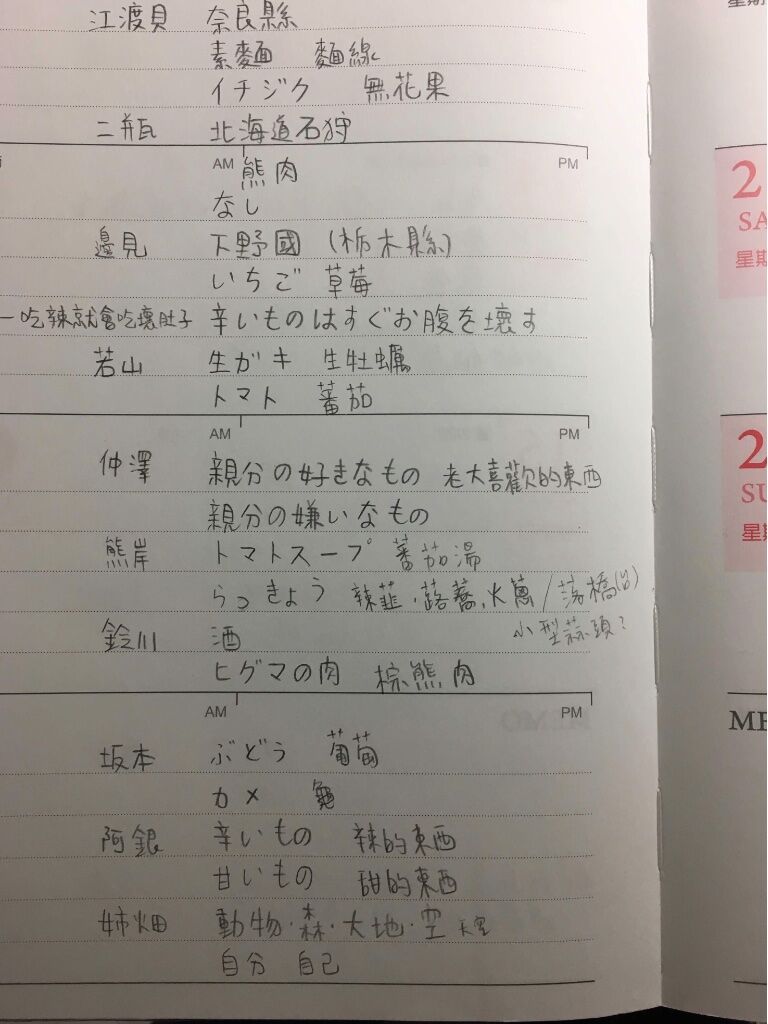 江渡貝 奈良縣
素麵 麵線
イチジク 無花果
二瓶 北海道石狩
AM PM
熊肉
なし
邊見 下野國 (栃木縣)
いちご 草莓
一吃辣就會吃壞肚子 辛いものはすぐお腹を壊す
若山 生ガキ 生牡蠣
トマト 蕃茄
AM PM
仲澤 親分の好きなもの 老大喜歡的東西
親分の嫌いなもの
熊岸 トマトスープ 蕃茄湯
らっきょう 辣韮・蕗蕎,火蔥/蕩橋(台)
小型蒜頭?
鈴川 酒
ヒグマの肉 棕熊肉
AM PM
坂本 ぶどう 葡萄
カメ 龜
阿銀 辛いもの 辣的東西
甘いもの 甜的東西
姉畑 動物・森・大地・空 天空
自分 自己
2
SA
星期
2
SU
星期
ME